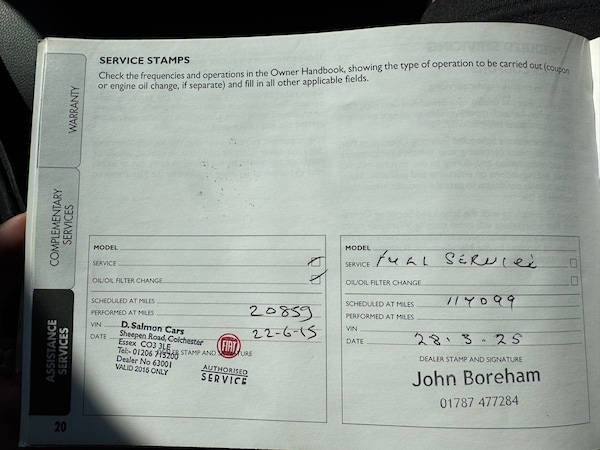 SERVICE STAMPS
Check the frequencies and operations in the Owner Handbook, showing the type of operation to be carried out (coupon
or engine oil change, if separate) and fill in all other applicable fields.
WARRANTY
COMPLEMENTARY
SERVICES
ASSISTANCE
SERVICES
MODEL
SERVICE
OIL/OIL FILTER CHANGE
SCHEDULED AT MILES
PERFORMED AT MILES 20859
VIN
DATE 22-6-15
D. Salmon Cars
Sheepen Road, Colchester
Essex CO3 3LE
Tel:- 01206 715200
Dealer No 63001
VALID 2015 ONLY
STAMP AND
URE
FIAT
AUTHORISED
SERVICE
MODEL
SERVICE FULL SERVICE
OIL/OIL FILTER CHANGE
SCHEDULED AT MILES 114099
PERFORMED AT MILES
VIN
DATE 28.3.25
DEALER STAMP AND SIGNATURE
John Boreham
01787 477284
20